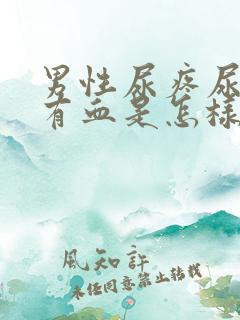 男性尿疼尿
有血是怎样
风知许
未经同意禁止转载